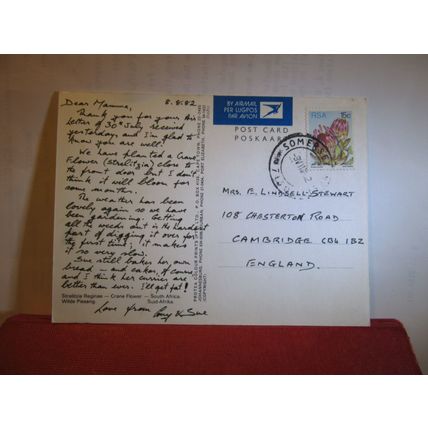 8.8.82
Dear Mamma,
Thank you for your Air
Letter of 30th July received
yesterday, and I'm glad to
know you are well.
We have planted a Crane
Flower (Strelitzia) close to
the front door but I don't
think it will bloom for
some months.
The weather has been
lovely again so we have
been gardening. Getting
all the weeds out is the hardest
part of digging it over for
the first time; it makes
it so very slow.
Sue still bakes her own
bread - and cakes, of course,
and I think her curries are
better than ever. I'll get fat!
Love from
& Sue
Strelitzia Reginae — Crane Flower — South Africa
Wilde Piesang
Suid-Afrika
BY AIRMAIL
PER LUGPOS
PAR AVION
POST CARD
POSKAART
RSA
15c
MRS. E. LINDSELL-STEWART
108 CHESTERTON ROAD
CAMBRIDGE CB4 1BZ
ENGLAND.